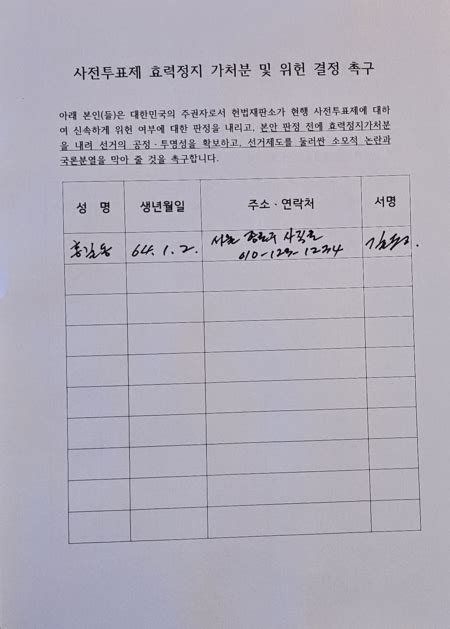 사전투표제 효력정지 가처분 및 위헌 결정 촉구
아래 본인(들)은 대한민국의 주권자로서 헌법재판소가 현행 사전투표제에 대하
여 신속하게 위헌 여부에 대한 판정을 내리고, 본안 판정 전에 효력정지가처분
을 내려 선거의 공정·투명성을 확보하고, 선거제도를 둘러싼 소모적 논란과
국론분열을 막아 줄 것을 촉구합니다.
성 명 생년월일 주소·연락처 서명
홍길동 64. 1. 2. 서울 종로구 사직로
010-123-1234